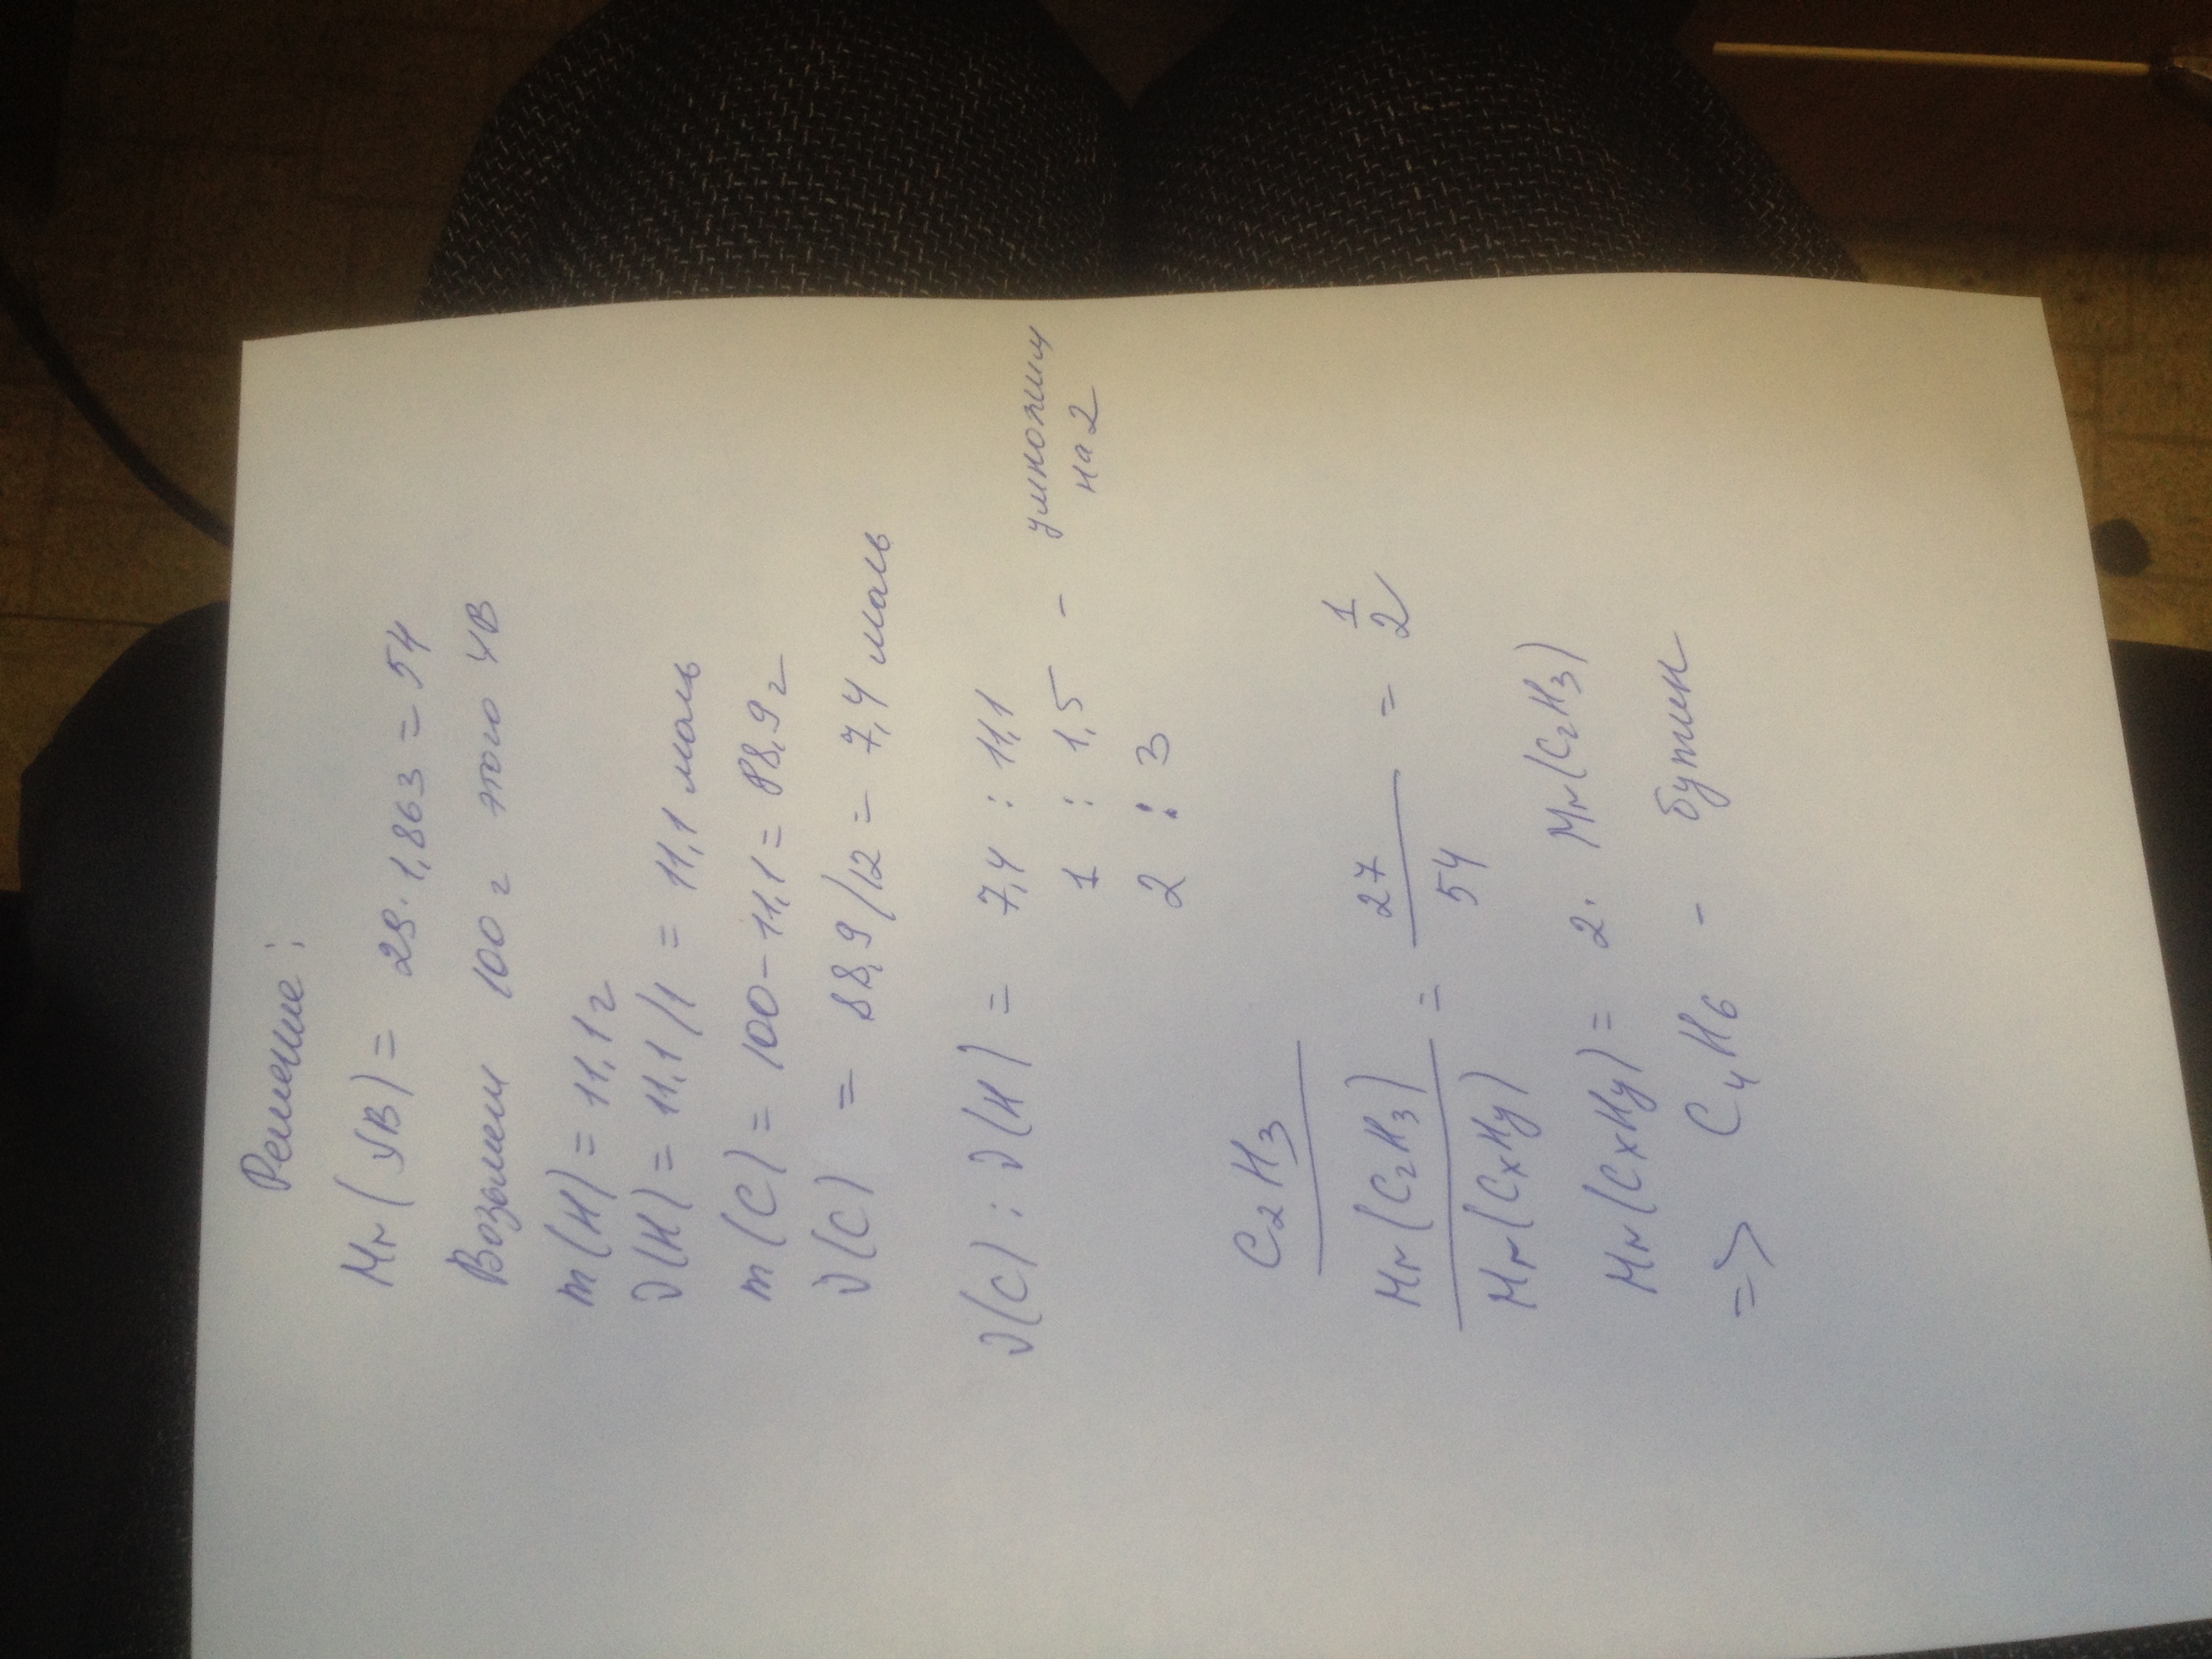 Решение:
Mr(УВ) = 29·1,863 = 54
Возьмем 100 г этого УВ
m(H) = 11,1 г
ν(H) = 11,1/1 = 11,1 моль
m(C) = 100-11,1 = 88,9 г
ν(C) = 88,9/12 = 7,4 моль
ν(C) : ν(H) = 7,4 : 11,1
1 : 1,5 - умножим на 2
2 : 3
C2H3
Mr(C2H3) / Mr(CxHy) = 27 / 54 = 1 / 2
Mr(CxHy) = 2 · Mr(C2H3)
=> C4H6 - бутин